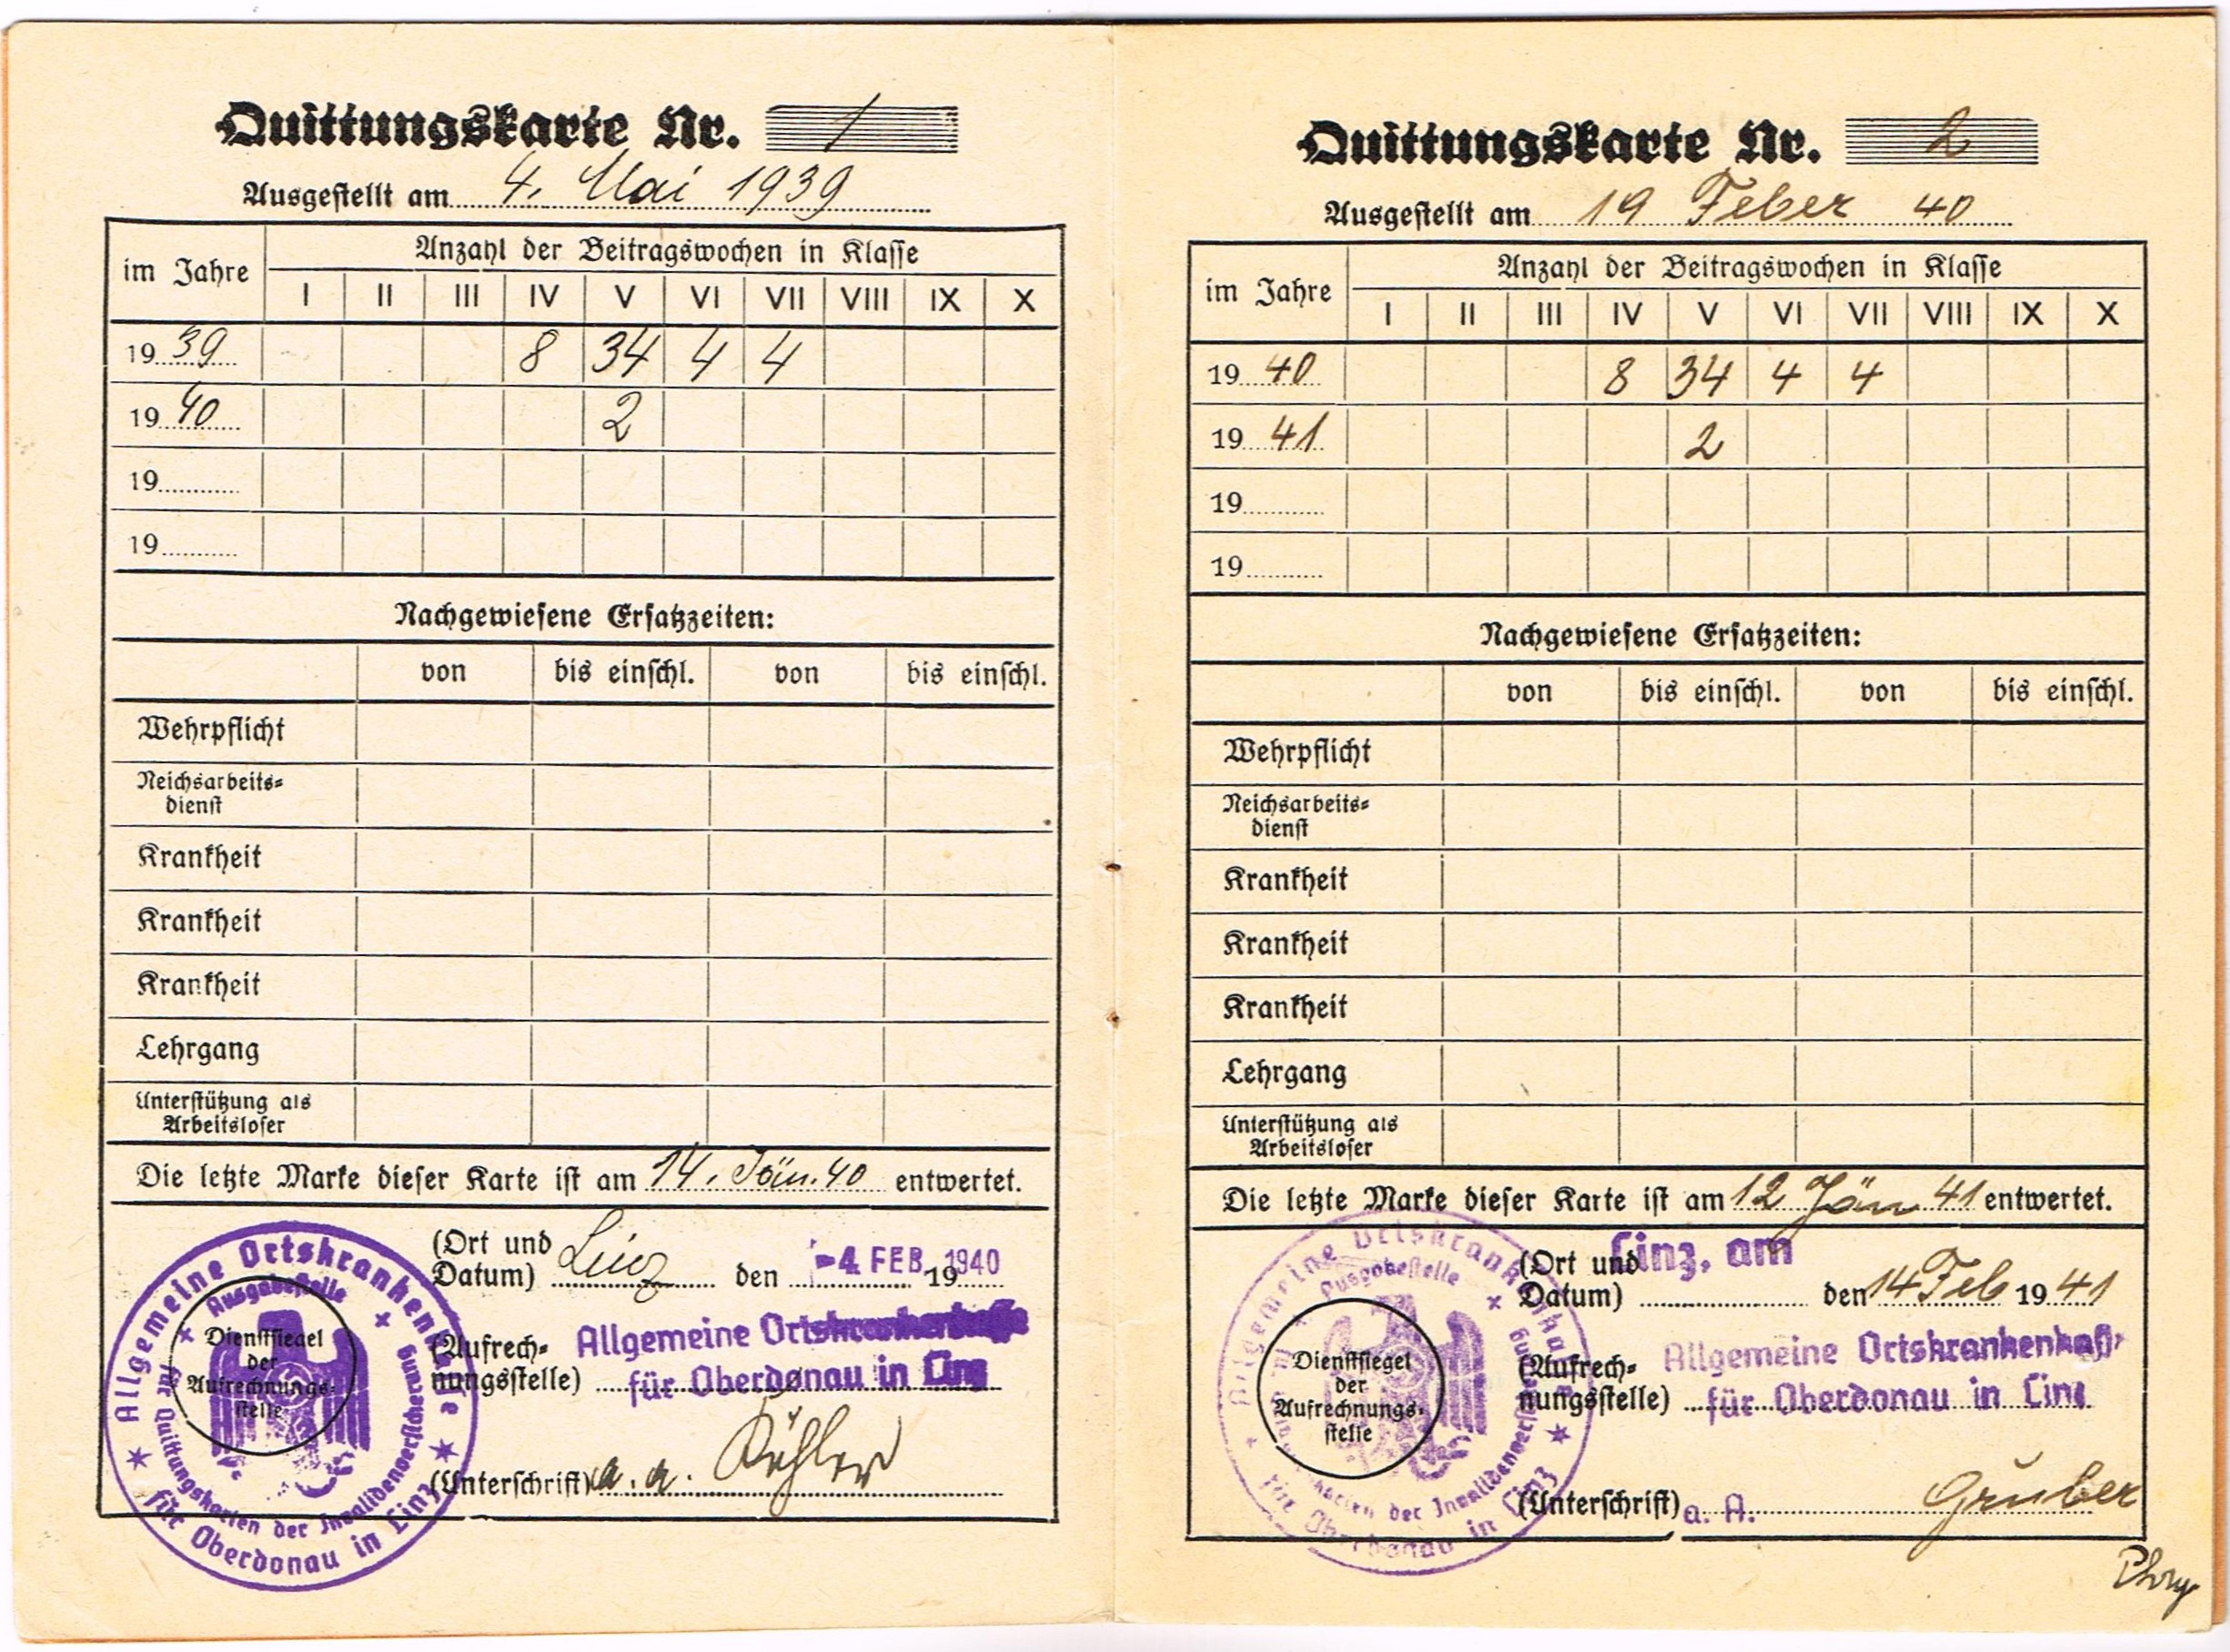 Quittungskarte Nr. 1
Ausgestellt am 4. Mai 1939
im Jahre
Anzahl der Beitragswochen in Klasse
I II III IV V VI VII VIII IX X
1939 8 34 4 4
1940 2
19
19
Nachgewiesene Ersatzzeiten:
von bis einschl. von bis einschl.
Wehrpflicht
Reichsarbeits-
dienst
Krankheit
Krankheit
Krankheit
Lehrgang
Unterstützung als
Arbeitsloser
Die letzte Marke dieser Karte ist am 14. Jän. 40 entwertet.
(Ort und
Datum) Linz den -4. FEB. 1940 19
(Aufrech-
nungsstelle)
Allgemeine Ortskrankenkasse
für Oberdonau in Linz
(Unterschrift) a. a. Köhler
Dienstsiegel
der
Aufrechnungs-
stelle
Allgemeine Ortskrankenkasse
für Oberdonau in Linz
Ausgabestelle
für Quittungskarten der Invalidenversicherung
Quittungskarte Nr. 2
Ausgestellt am 19 Feber 40
im Jahre
Anzahl der Beitragswochen in Klasse
I II III IV V VI VII VIII IX X
1940 8 34 4 4
1941 2
19
19
Nachgewiesene Ersatzzeiten:
von bis einschl. von bis einschl.
Wehrpflicht
Reichsarbeits-
dienst
Krankheit
Krankheit
Krankheit
Lehrgang
Unterstützung als
Arbeitsloser
Die letzte Marke dieser Karte ist am 12 Jän 41 entwertet.
Linz, am
(Ort und
Datum) den 14 Feb 1941
(Aufrech-
nungsstelle)
Allgemeine Ortskrankenkasse
für Oberdonau in Linz
(Unterschrift) a. A. Gruber
Dienstsiegel
der
Aufrechnungs-
stelle
Allgemeine Ortskrankenkasse
für Oberdonau in Linz
Ausgabestelle
für Quittungskarten der Invalidenversicherung